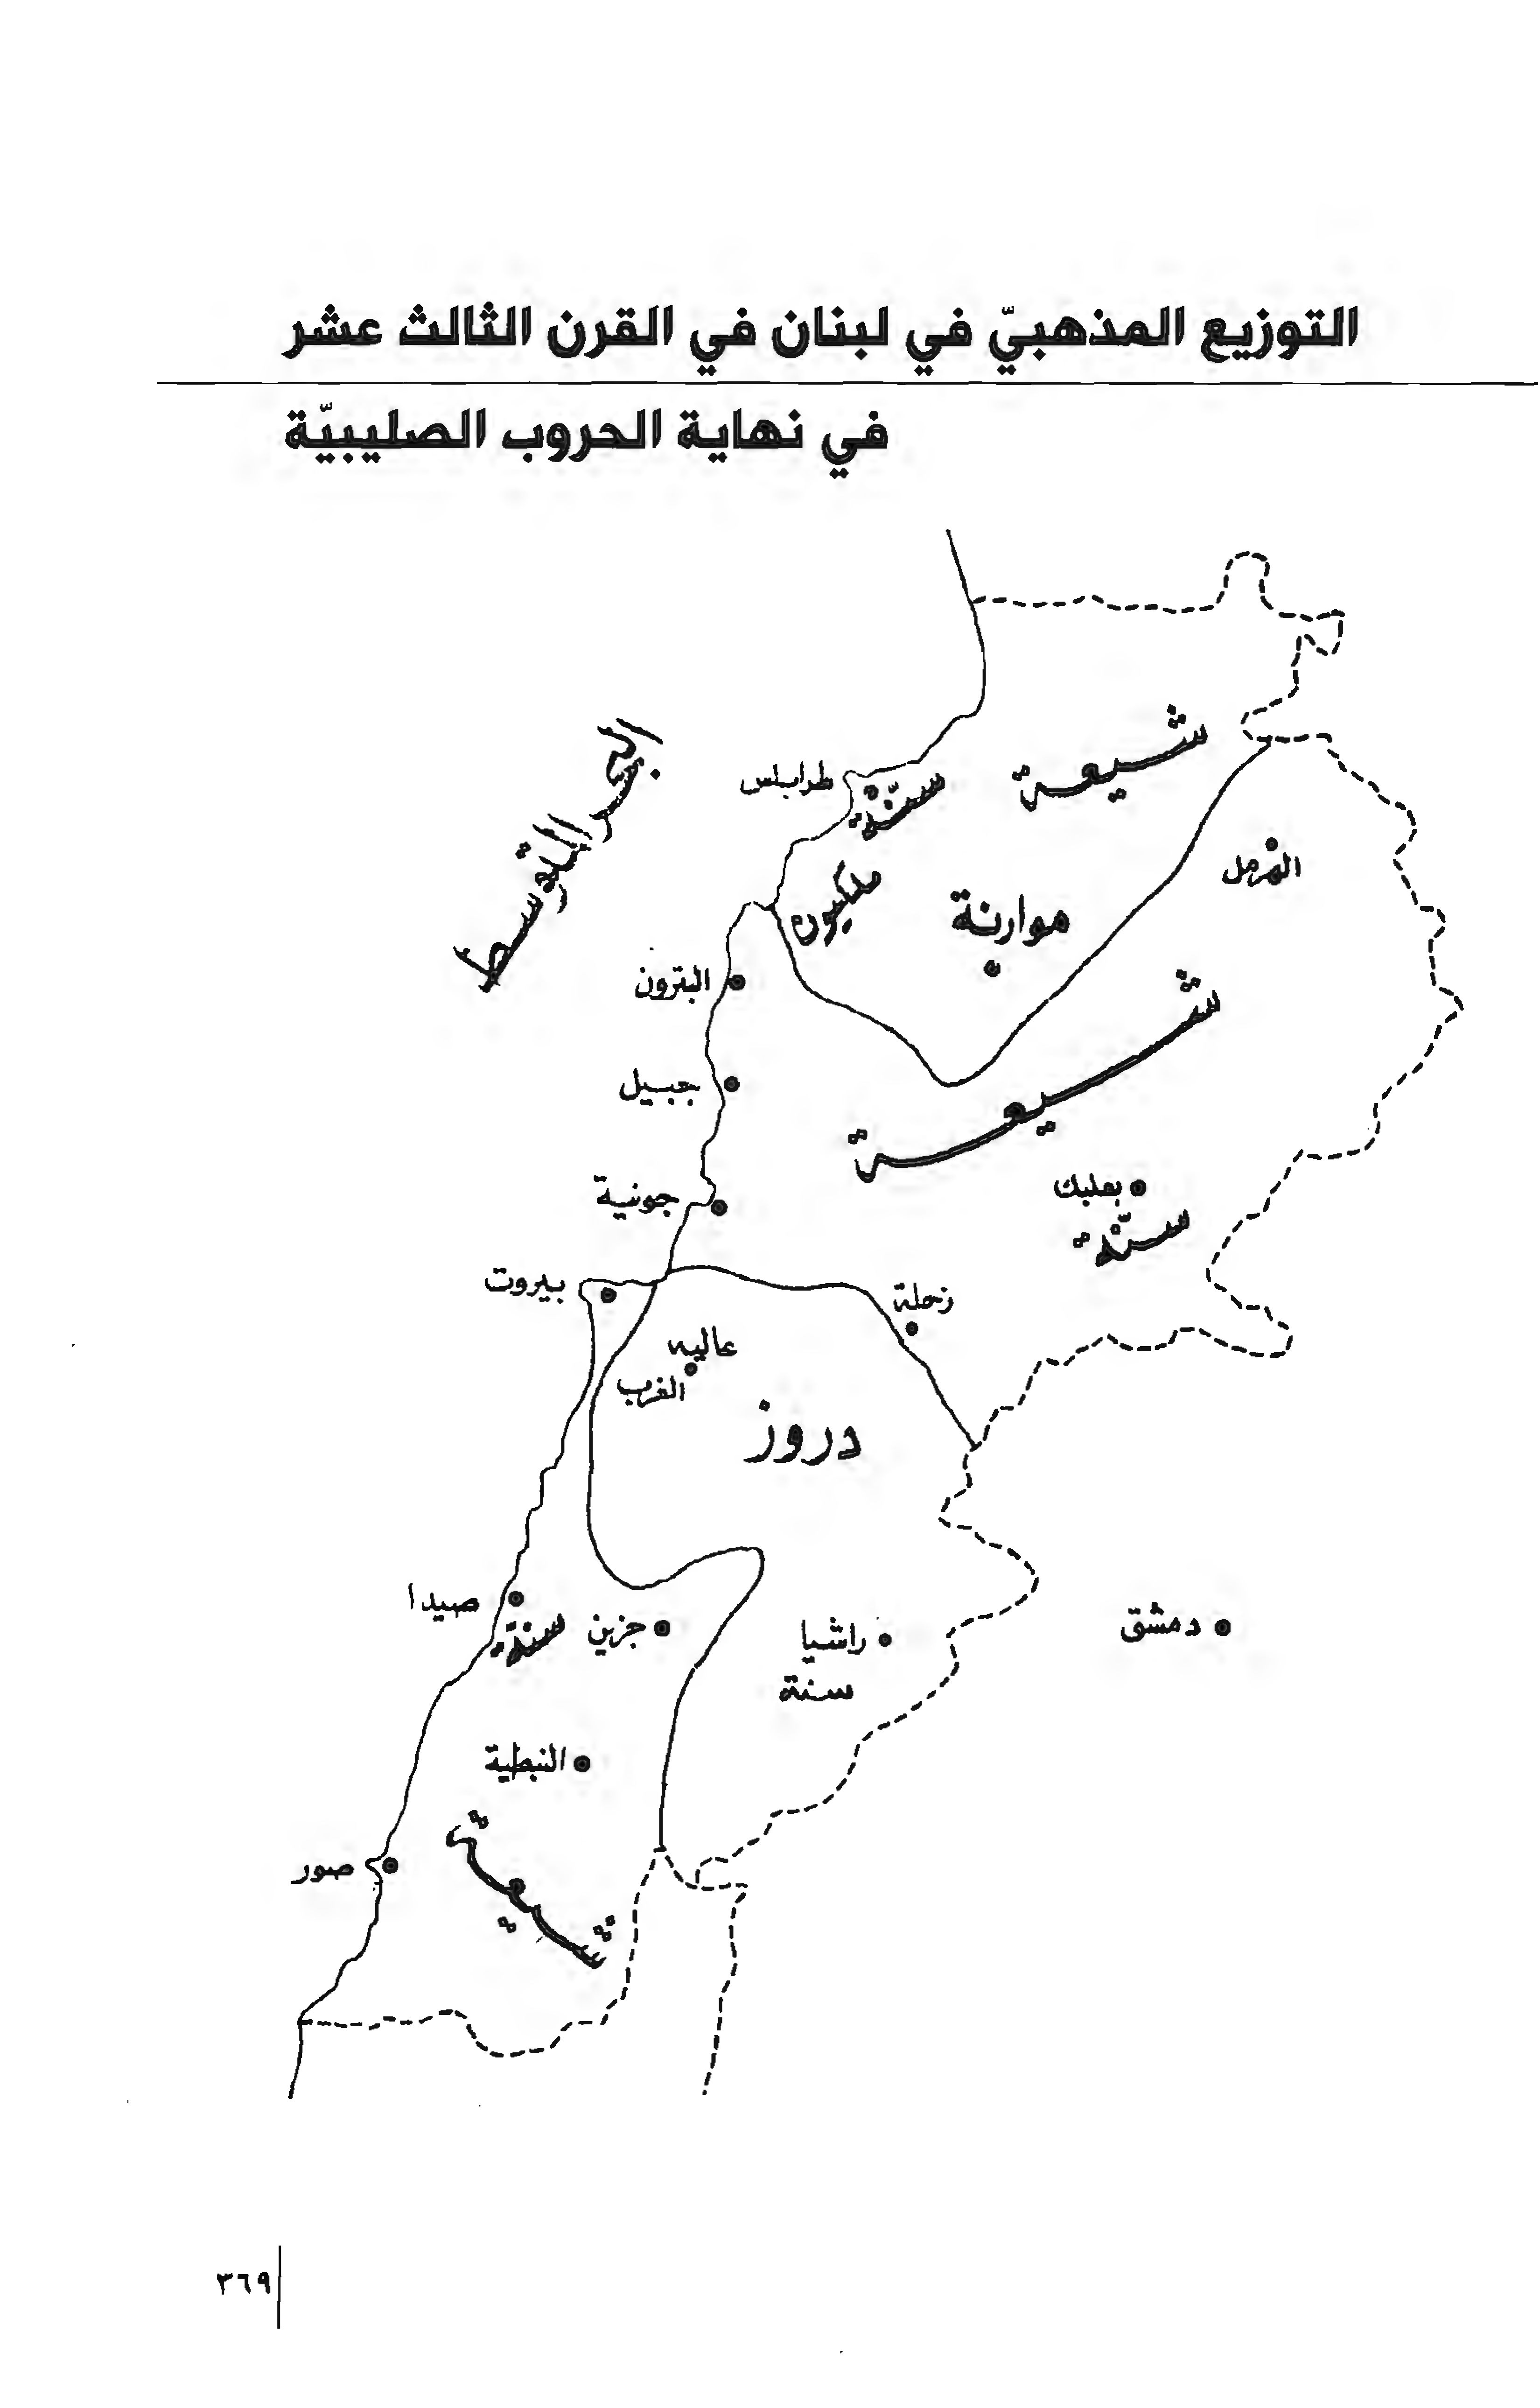 التوزيع المذهبيّ في لبنان في القرن الثالث عشر
في نهاية الحروب الصليبيّة
البحر المتوسط
شيعة
طرابلس
سنّة
الهرمل
ملكيون
موارنة
البترون
شيعة
جبيل
بعلبك
جونية
سنّة
بيروت
زحلة
عاليه
الغرب
دروز
صيدا
سنّة
جزين
راشيا
سنة
دمشق
النبطية
صور
شيعة
٣٦٩